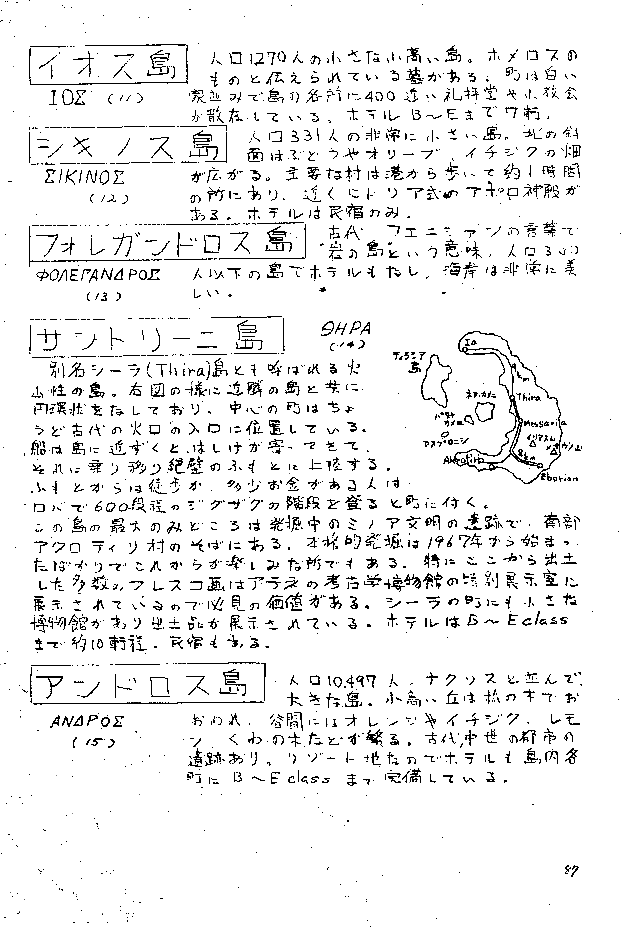 イオス島
ΙΟΣ (11)
人口1270人の小さな小高い島。ホメロスの
ものと伝えられている墓がある。町は白い
家並みで島の各所に400近い礼拝堂や小教会
が散在している。ホテルB～Eまで7軒。
シキノス島
ΣΙΚΙΝΟΣ
(12)
人口331人の非常に小さい島。北の斜
面はぶどうやオリーブ、イチジクの畑
が広がる。主要な村は港から歩いて約1時間
の所にあり、近くにドリア式のアポロ神殿が
ある。ホテルは民宿のみ。
フォレガンドロス島
ΦΟΛΕΓΑΝΔΡΟΣ
(13)
古代、フェニシアンの言葉で
"岩の島"という意味。人口300
人以下の島でホテルもなし。海岸は非常に美
しい。
サントリーニ島
ΘΗΡΑ
(14)
別名シーラ(Thira)島とも呼ばれる火
山性の島。右図の様に近隣の島と共に
円環状をなしており、中心の町はちょ
うど古代の火口の入口に位置している。
船は島に近ずくと、はしけが寄ってきて、
それに乗り移り絶壁のふもとに上陸する。
ふもとからは徒歩か、多少お金がある人は
ロバで600段程のジグザグの階段を登ると町に付く。
この島の最大のみどころは発掘中のミノア文明の遺跡で、南部
アクロティリ村のそばにある。本格的発掘は1967年から始まっ
たばかりでこれからが楽しみな所でもある。特にここから出土
した多数のフレスコ画はアテネの考古学博物館の特別展示室に
展示されているので必見の価値がある。シーラの町にも小さな
博物館があり出土品が展示されている。ホテルはB～Eclass
まで約10軒程。民宿もある。
Ia
ティラシア
島
Thira
Messaria
8km
Akrotiri
Eborion
アンドロス島
ΑΝΔΡΟΣ
(15)
人口10,497人。ナクソスと並んで
大きな島。小高い丘は松の木でお
おわれ、谷間にはオレンジやイチジク、レモ
ン、くわの木などが繁る。古代,中世の都市の
遺跡あり。リゾート地なのでホテルも島内各
町にB～Eclassまで完備している。
87